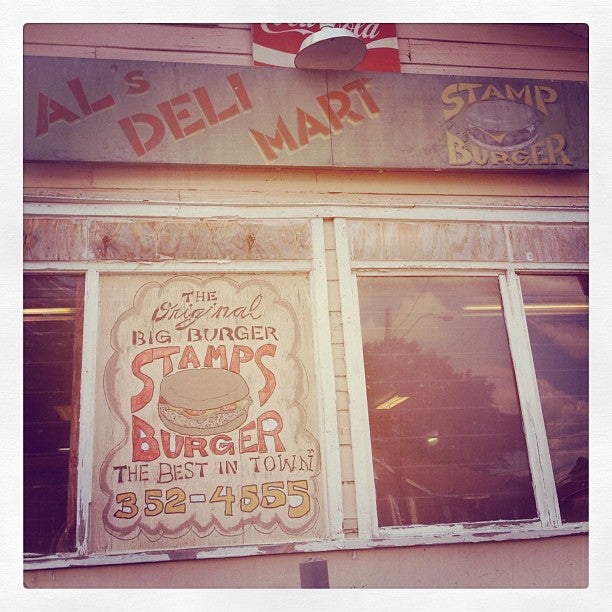 Coca-Cola
AL'S DELI MART
STAMP
BURGER
THE
Original
BIG BURGER
STAMPS
BURGER
THE BEST IN TOWN
352-4555